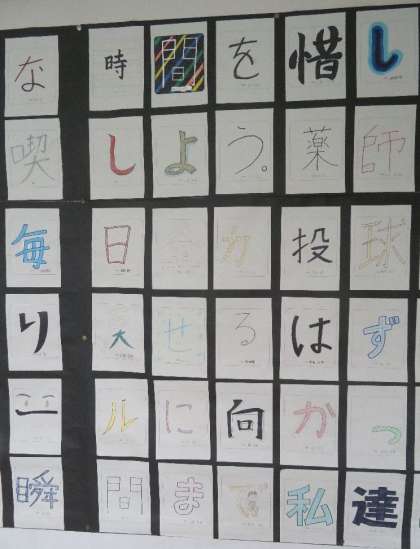 な時間を惜し
喫しよう。薬師
毎日全力投球
り大せるはず
ルに向かっ
瞬間まで私達